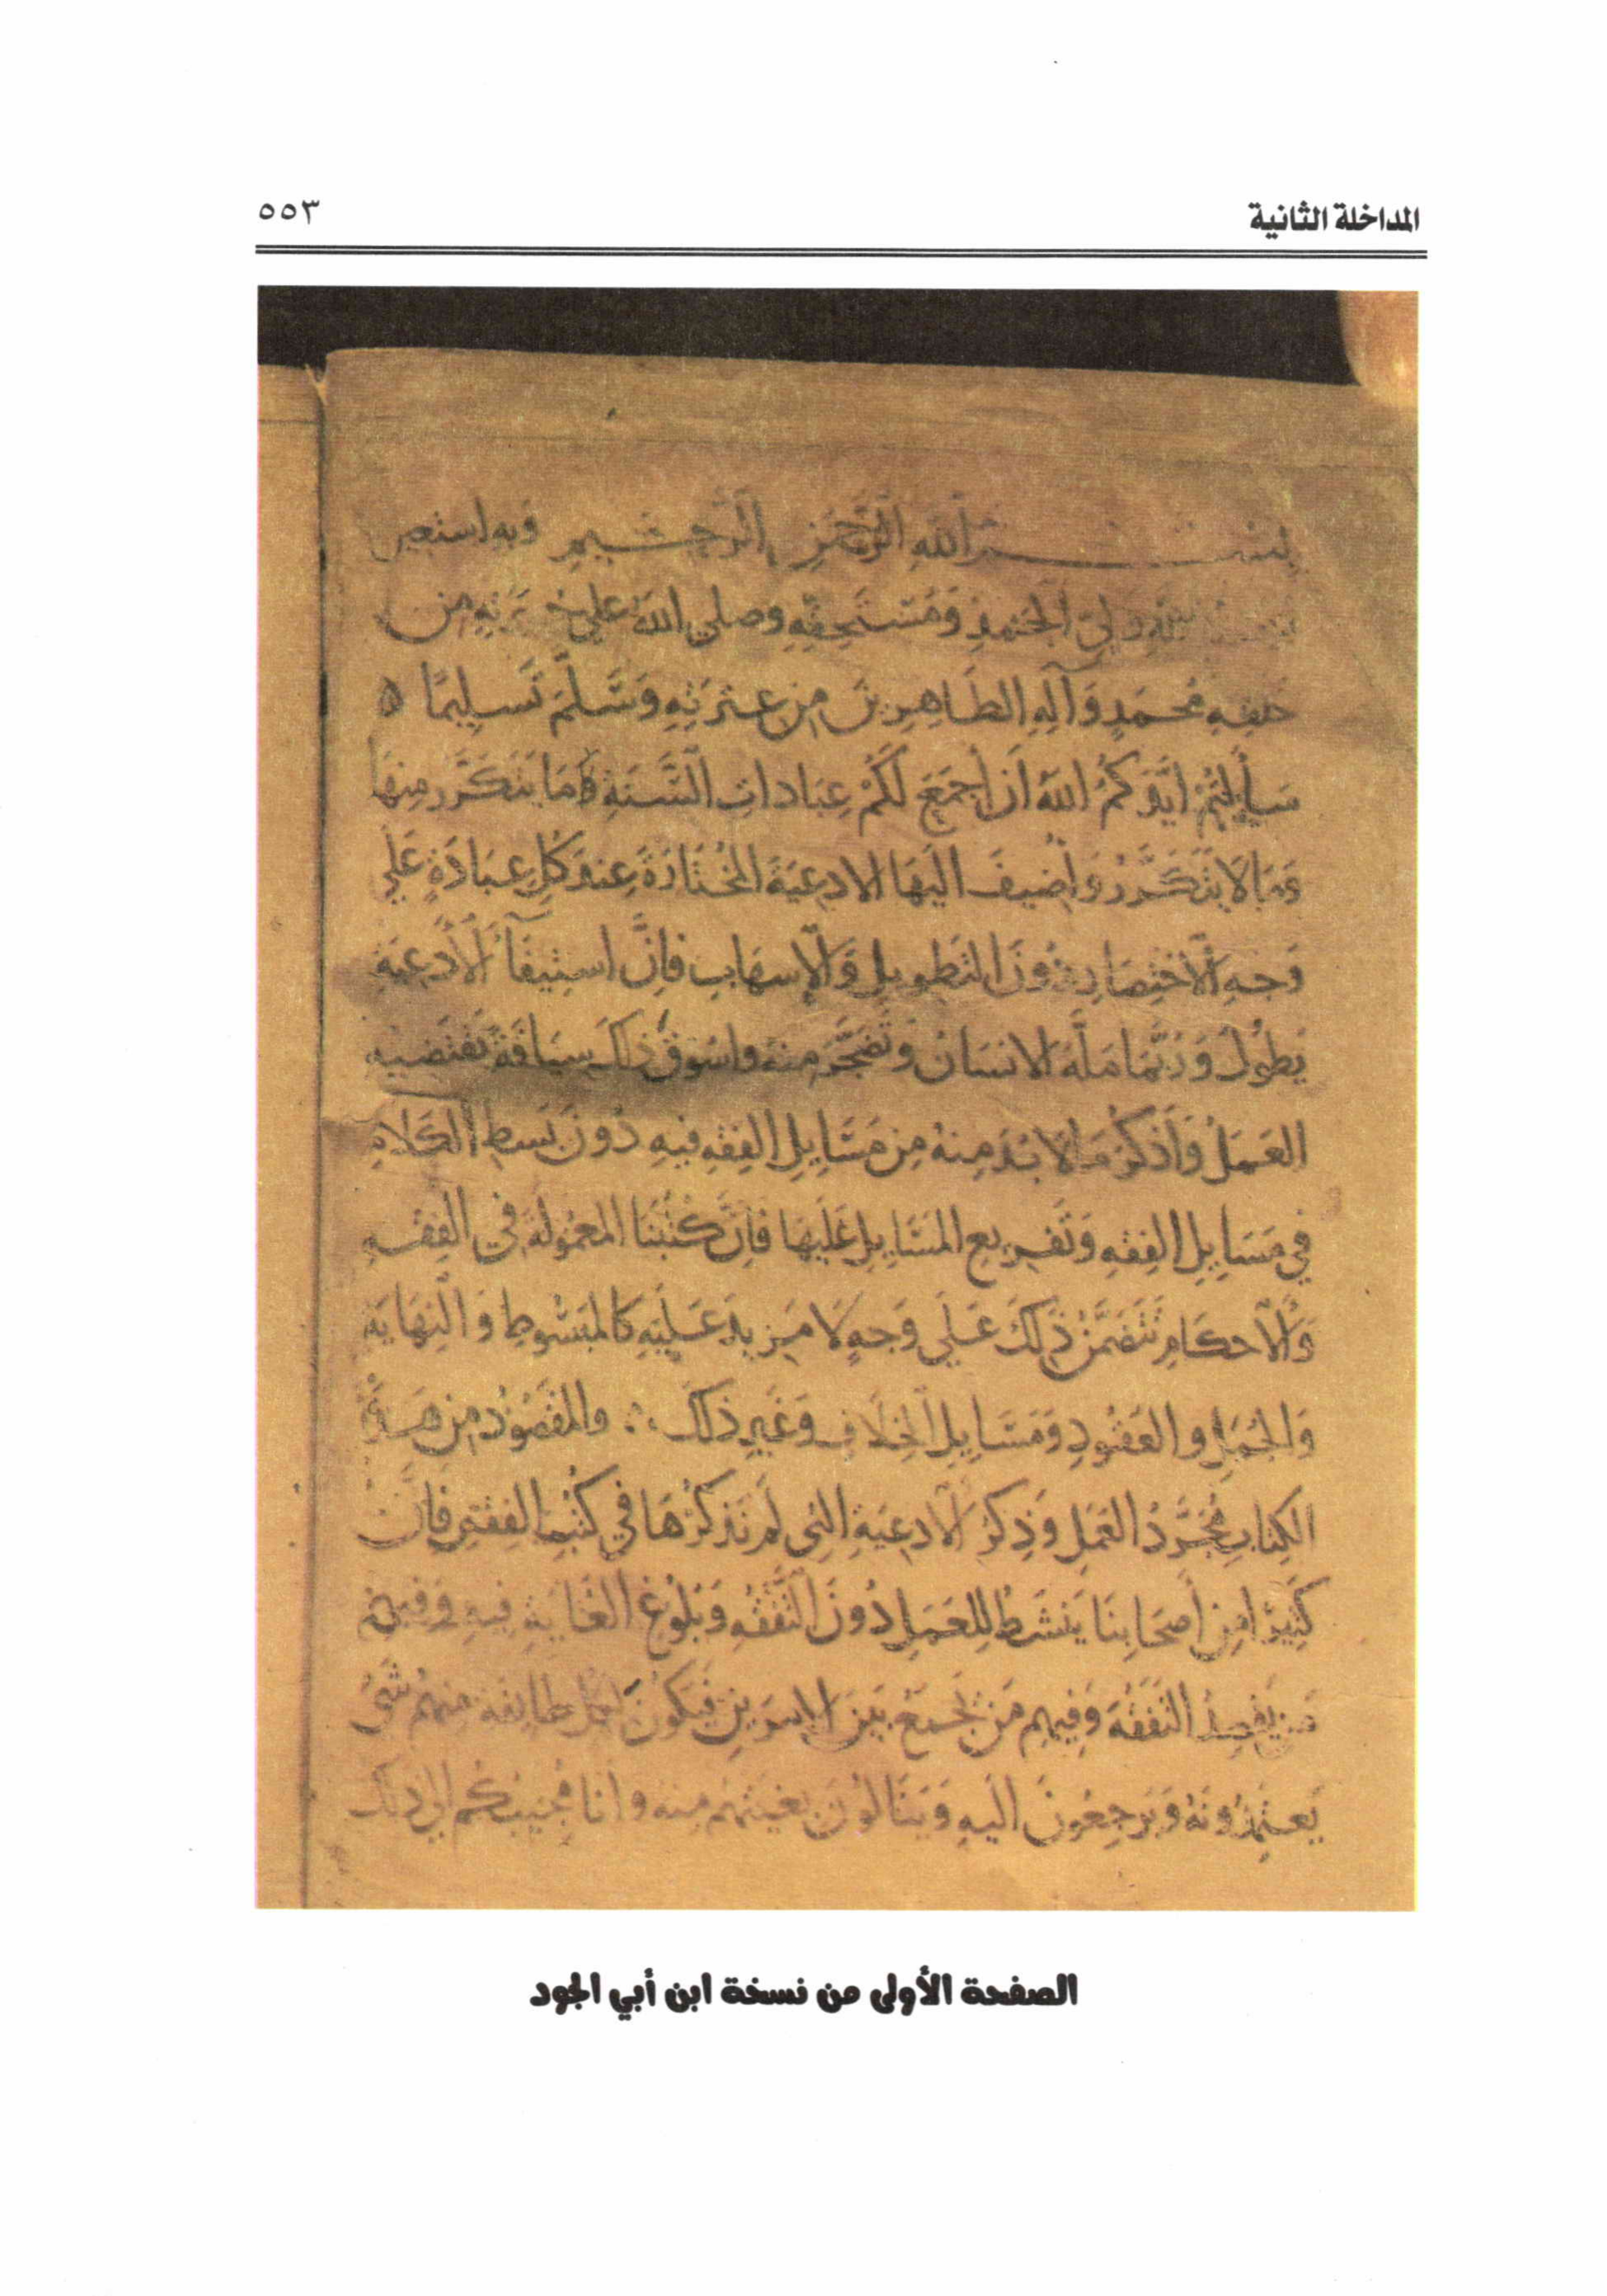 المداخلة الثانية
٥٥٣
بِسْمِ اللهِ الرَّحْمَنِ الرَّحِيمِ وَبِهِ استعين
لله وليّ الحَمْدِ وَمُسْتَحِقِّهِ وصلى الله على من
خلقِهِ مُحَمَدٍ وَآلِهِ الطَاهِرِينَ مِن عِتْرَتِهِ وَسَّلَمَ تَسلِيمًا ه
سَأَلتُمْ ايَّدَكُمُ اللهُ اَن أَجمَعَ لَكُمْ عِبَاداتِ السَّنَةِ مَا يَتَكَرَّر مِنهَا
وَمَا لَا يَتَكَرَّرُ وَاُضِيفَ اليَهَا الادعِيَةَ المُختَارَةَ عِندَ كُلِّ عِبَادَةٍ عَلى
وَجهِ الاختِصَارِ دُونَ التَطوِيلِ وَالإسهَابِ فاِنَّ استِيفَآءَ الأَدعِيَةِ
يَطُولُ وَرُبَّمَا مَلَّهُ الانسَانُ وَتَضَجَّرَ مِنهُ واسُوقُ ذلكَ سِيَاقَةً يَقتَضيهِ
العَمَلُ وَاَذكُرُ مَا لَا بُدَ مِنهُ مِن مَسَايِلِ الفِقهِ فيهِ دُونَ بَسطِ الكَلَامِ
فِي مَسَايِلِ الفِقهِ وَتَفرِيعِ المَسَايِلِ عَلَيهَا فَاِنَّ كُتُبَنَا المَعمُولَةَ فِي الفِقهِ
وَالاَحكَامِ تَتَضَمَّنُ ذَلِكَ عَلَى وَجهٍ لَا مَزِيدَ عَلَيهِ كَالمَبسُوطِ وَالنِهَايَةِ
وَالجُمَلِ والعُقُودِ وَمَسَايِلِ الخِلَافِ وَغَيرِ ذلكَ ؞ والمَقصُودُ مِن هَذَا
الكِتابِ مُجَرَّدُ العَمَلِ وَذِكرُ الاَدعِيَةِ التي لَم نَذكُرْهَا فِي كتُبِ الفِقهِ فَاِنَّ
كَثِيرًا مِن أَصحَابِنَا يَنشَطُ لِلعَمَلِ دُونَ التَّفَقُّهِ وَبُلُوغِ الغَايَةِ فِيهِ وَفيهم
مَن يَقصِدُ التَفَقُّهَ وَفِيهِم مَن يَجمَعُ بَيَنَ الامرَينِ فَيَكُونُ لكلّ طايفة مِنهُم شَيءٌ
يَعتَمِدُونَهُ وَيَرجِعُونَ اليَهِ وَيَنَالُونَ بغيَتَهُم مِنهُ وانا مُجِيبُكُم الى ذلك
الصفحة الأولى من نسخة ابن أبي الجود